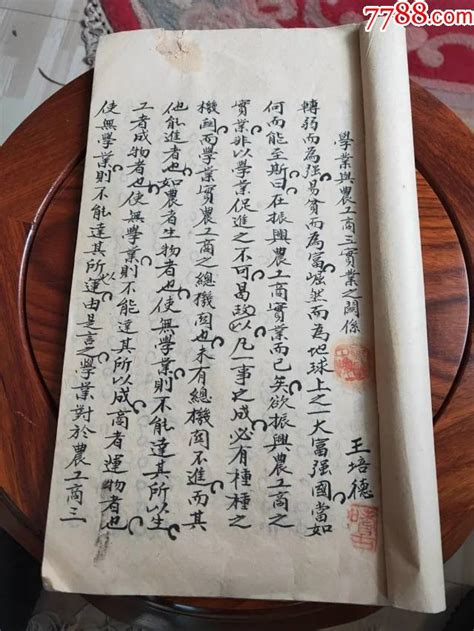 7788.com
學業與農工商三實業之關係
王培德
轉弱而為强易貧而為富崛然而為地球上之一大富强國當如
何而能至斯曰在振興農工商實業而已矣欲振興農工商之
實業非以學業促進之不可曷故以凡一事之成必有種種之
機関而學業實農工商之總機関也未有總機関不進而其
他能進者也如農者生物者也使無學業則不能達其所以生
工者成物者也使無學業則不能達其所以成商者運物者也
使無學業則不能達其所以運由是言之學業對於農工商三